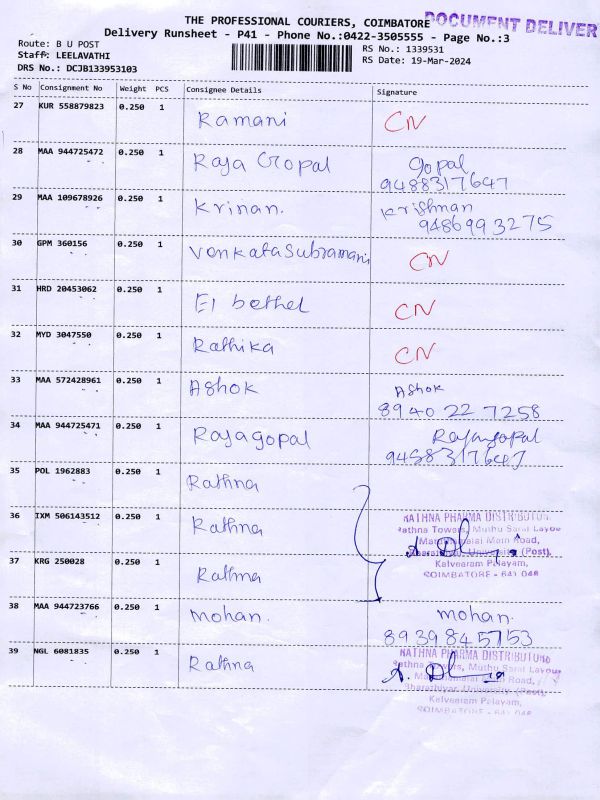 THE PROFESSIONAL COURIERS, COIMBATORE
DOCUMENT DELIVER
Delivery Runsheet - P41 - Phone No.:0422-3505555 - Page No.:3
Route: B U POST
RS No.: 1339531
Staff: LEELAVATHI
RS Date: 19-Mar-2024
DRS No.: DCJB133953103
S No Consignment No Weight PCS Consignee Details Signature
27 KUR 558879823 0.250 1 Ramani CN
28 MAA 944725472 0.250 1 Raja Gopal Gopal
9488317647
29 MAA 109678926 0.250 1 Krinan. Krishnan
9486993275
30 GPM 360156 0.250 1 Venkatasubramani CN
31 HRD 20453062 0.250 1 El bethel CN
32 MYD 3047550 0.250 1 Rathika CN
33 MAA 572428961 0.250 1 Ashok Ashok
8940227258
34 MAA 944725471 0.250 1 Rajagopal Rajagopal
9488317647
35 POL 1962883 0.250 1 Rathna
36 IXM 506143512 0.250 1 Rathna
RATHNA PHARMA DISTRIBUTOR
Rathna Towers, Muthu Sarai Layou
Main Road,
(Post),
Kalveeram Palayam,
COIMBATORE - 641 046
37 KRG 250028 0.250 1 Rathna
38 MAA 944723766 0.250 1 Mohan. Mohan.
8939845753
39 NGL 6081835 0.250 1 Rathna
RATHNA PHARMA DISTRIBUTOR
Rathna Towers, Muthu Sarai Layou
Main Road,
Bharathiyar University (Post),
Kalveeram Palayam,
COIMBATORE - 641 046